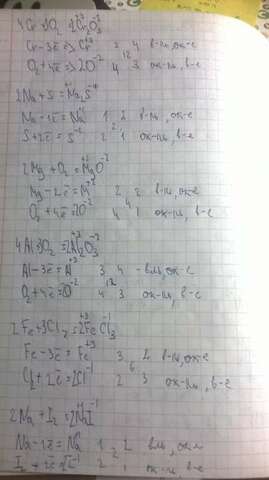 4Cr+3O₂=2Cr₂⁺³O₃⁻²
Cr-3ē=>Cr⁺³ 3 4 в-ль, ок-е
O₂+4ē=>2O⁻² 12 4 3 ок-ль, в-е
2Na+S=Na₂⁺¹S⁻²
Na-1ē=Na⁺¹ 1 2 в-ль, ок-е
S+2ē=S⁻² 2 2 1 ок-ль, в-е
2Mg+O₂=Mg⁺²O⁻²
Mg-2ē=M⁺² 2 2 в-ль, ок-е
O₂+4ē=2O⁻² 4 4 1 ок-ль, в-е
4Al+3O₂=2Al₂⁺³O₃⁻²
Al-3ē=A⁺³ 3 4 - в-ль, ок-е
O₂+4ē=O⁻² 12 4 3 ок-ль, в-е
2Fe+3Cl₂=2Fe⁺³Cl₃⁻¹
Fe-3ē=Fe⁺³ 3 2 в-ль, ок-е
Cl₂+2ē=2Cl⁻¹ 6 2 3 ок-ль, в-е
2Na+I₂=2Na⁺¹I⁻¹
Na-1ē=Na⁺¹ 1 2 в-ль,
I₂+2ē=2I⁻¹ 2 2 1 ок-ль, в-е